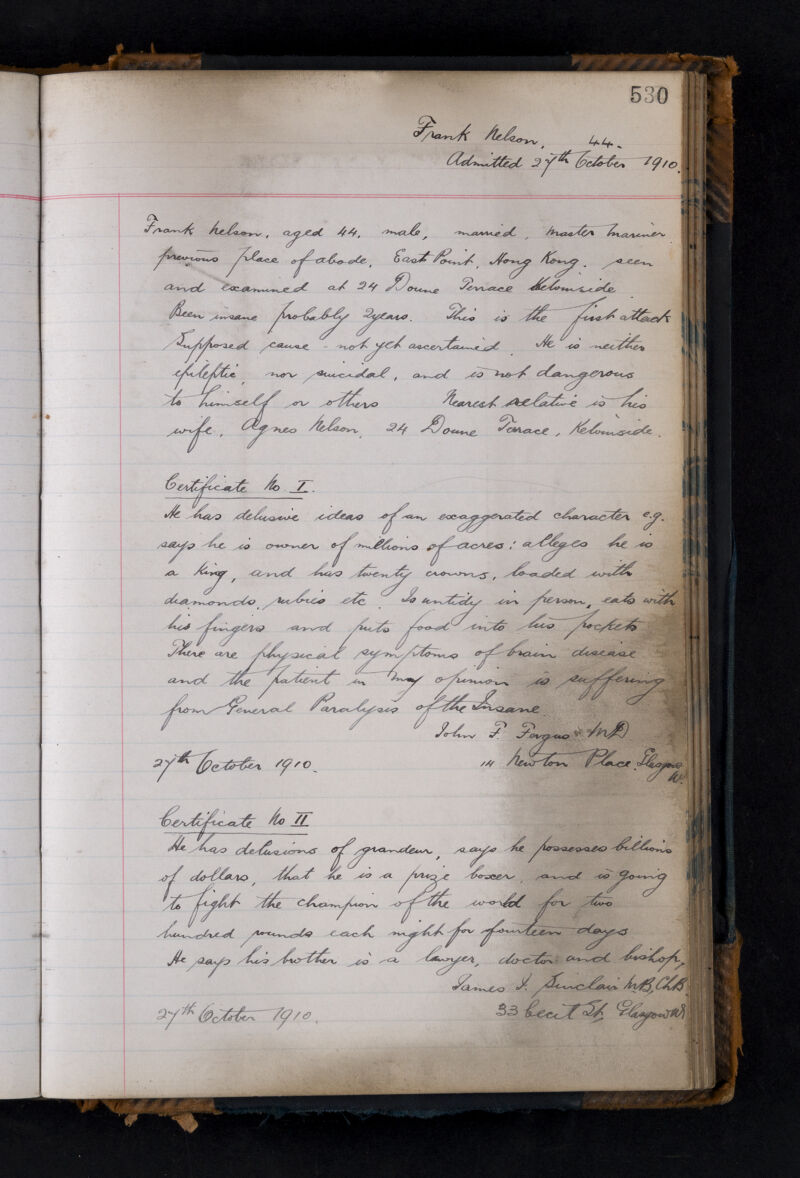 530
Frank Nelson. 44.
Admitted 27th October 1910.
Frank Nelson, aged 44, male, married, master mariner.
previous place of abode, East Point, Hong Kong. seen
and examined at 24 Doune Terrace Kelvinside.
Been insane probably 2 years. This is the first attack
Supposed cause - not yet ascertained. He is neither
epileptic, nor suicidal, and is not dangerous
to himself or others Nearest relative is his
wife, Agnes Nelson, 24 Doune Terrace, Kelvinside.
Certificate No I.
He has delusive ideas of an exaggerated character e.g.
says he is owner of millions of acres: alleges he is
a King, and has twenty crowns, loaded with
diamonds, rubies etc. Is untidy in person, eats with
his fingers and puts food into his pockets
There are physical symptoms of brain disease
and the patient in my opinion is suffering
from General Paralysis of the Insane.
John F. Fergus MD
27th October 1910. Newton Place. Glasgow
W.
Certificate No II
He has delusions of grandeur, says he possesses billions
of dollars, that he is a prize boxer, and is going
to fight the champion of the world for two
hundred rounds each night for fourteen days
He says his brother is a lawyer, doctor and bishop,
James Sinclair M.B, Ch.B
27th October 1910. 33 Cecil St, Glasgow W